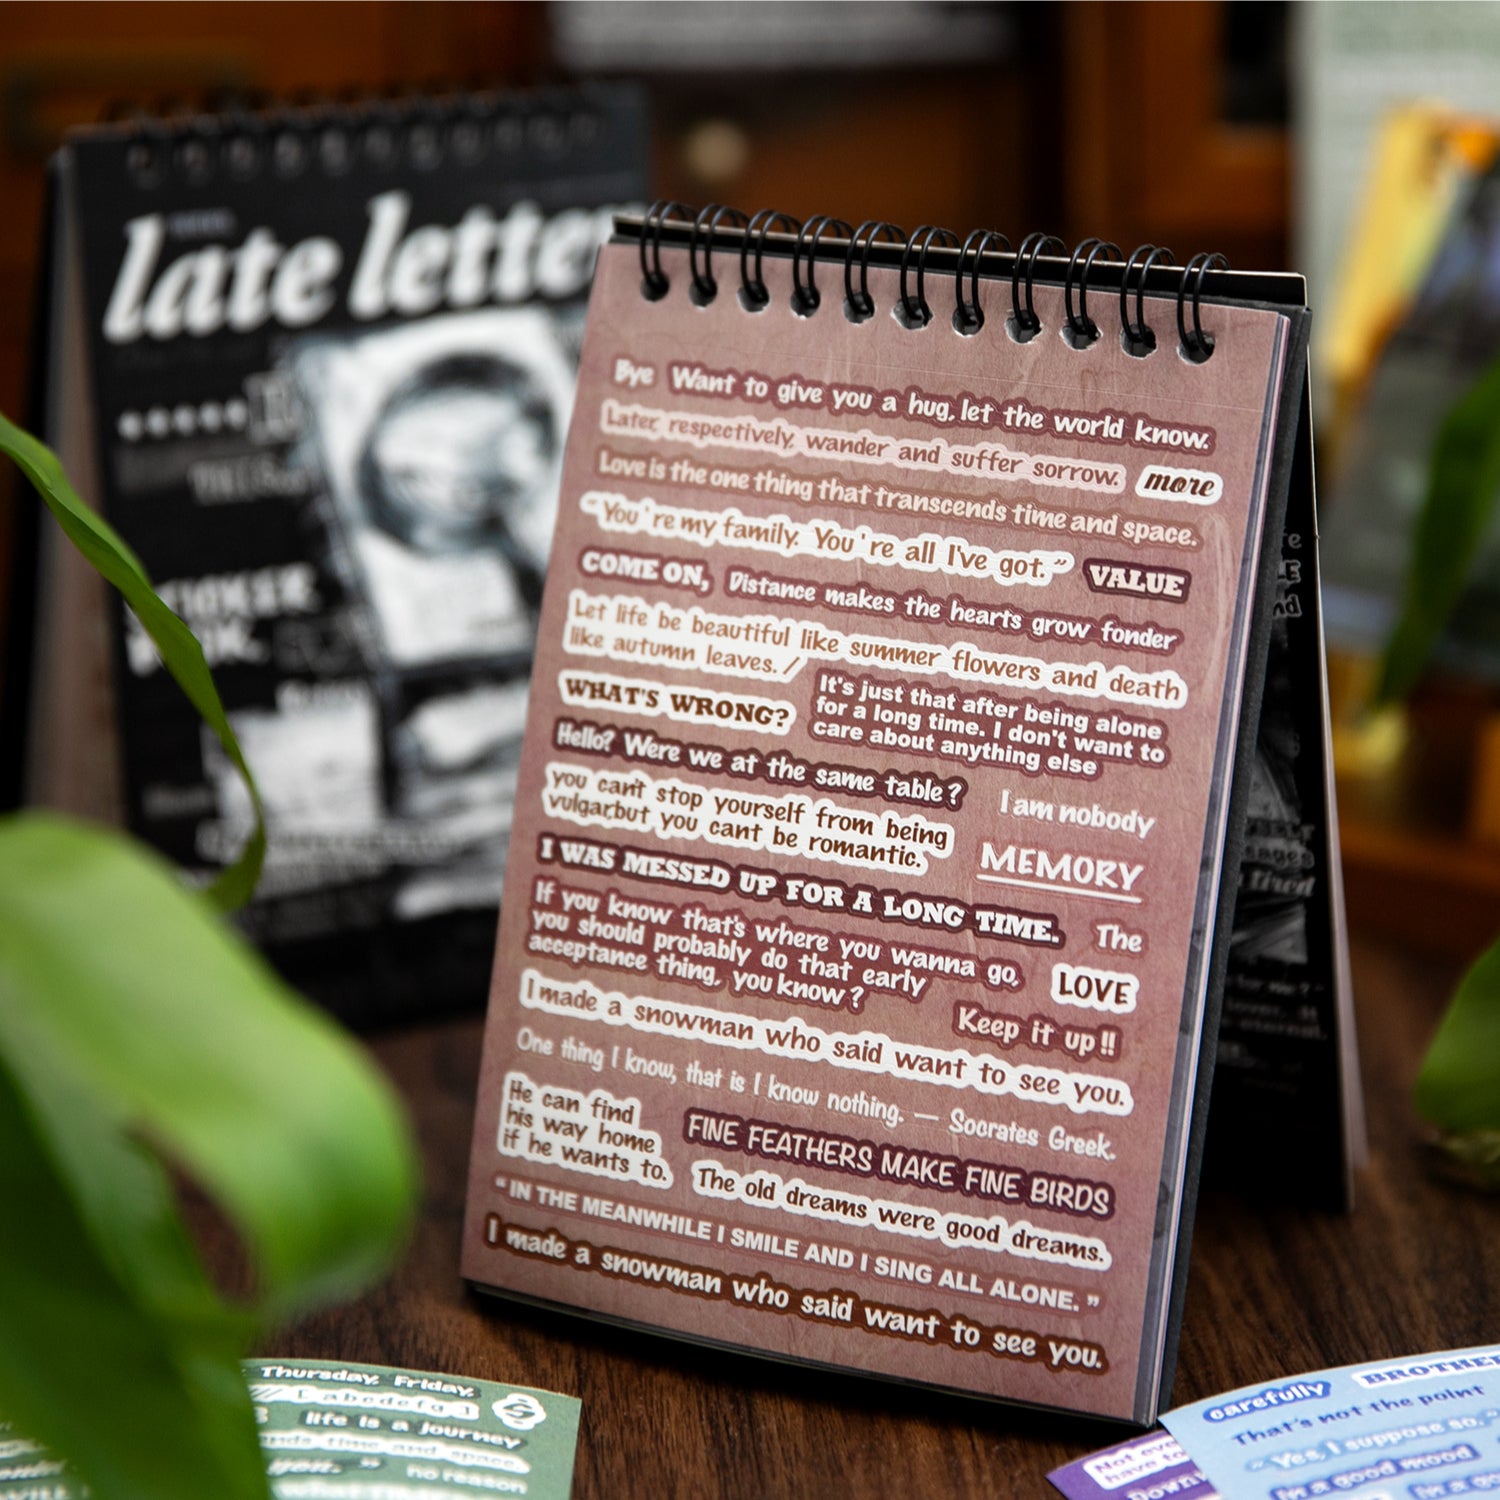 late letter
Bye Want to give you a hug, let the world know.
Later, respectively, wander and suffer sorrow. more
Love is the one thing that transcends time and space.
“You're my family. You're all I've got.” VALUE
COME ON, Distance makes the hearts grow fonder
Let life be beautiful like summer flowers and death
like autumn leaves. /
WHAT'S WRONG?
It's just that after being alone
for a long time. I don't want to
care about anything else
Hello? Were we at the same table?
I am nobody
you can't stop yourself from being
vulgar,but you cant be romantic.
MEMORY
I WAS MESSED UP FOR A LONG TIME.
The
If you know that's where you wanna go,
you should probably do that early
acceptance thing, you know?
LOVE
Keep it up!!
I made a snowman who said want to see you.
One thing I know, that is I know nothing. — Socrates Greek.
He can find
his way home
if he wants to.
FINE FEATHERS MAKE FINE BIRDS
The old dreams were good dreams.
“IN THE MEANWHILE I SMILE AND I SING ALL ALONE.”
I made a snowman who said want to see you.
Thursday, Friday,
[ abcdefg ]
life is a journey
time and space.
you.” no reason
carefully BROTHER
That's not the point
“Yes, I suppose so.”
in a good mood